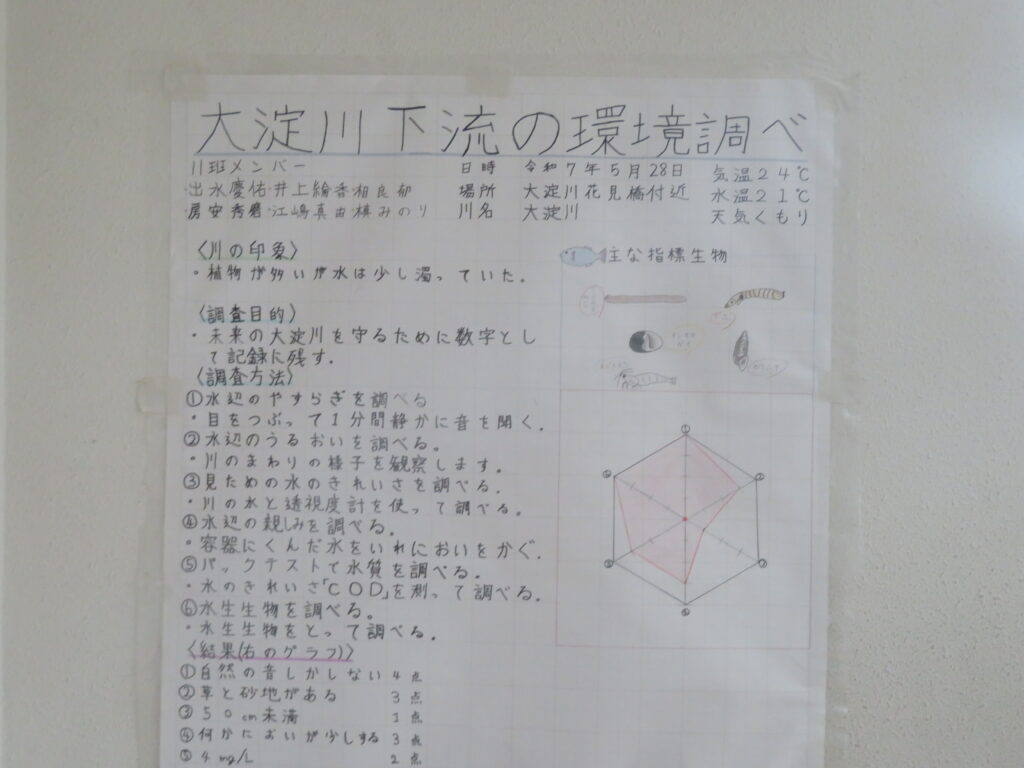 大淀川下流の環境調べ
川班メンバー 日時 令和7年5月28日 気温24℃
出水慶佑・井上綸香相良郁 場所 大淀川花見橋付近 水温21℃
房安秀磨・江嶋真由槙みのり 川名 大淀川 天気くもり
〈川の印象〉
・植物が多いが水は少し濁っていた。
主な指標生物
〈調査目的〉
・未来の大淀川を守るために数字とし
て記録に残す.
〈調査方法〉
①水辺のやすらぎを調べる
・目をつぶって1分間静かに音を聞く.
②水辺のうるおいを調べる。
・川のまわりの様子を観察します。
③見ための水のきれいさを調べる.
・川の水と透視度計を使って調べる.
④水辺の親しみを調べる。
・容器にくんだ水をいれにおいをかぐ.
⑤パックテストで水質を調べる.
・水のきれいさ「COD」を測って調べる.
⑥水生生物を調べる。
・水生生物をとって調べる.
〈結果(右のグラフ)〉
①自然の音しかしない 4点
②草と砂地がある 3点
③50cm未満 1点
④何かにおいが少しする 3点
⑤4mg/L 2点
①